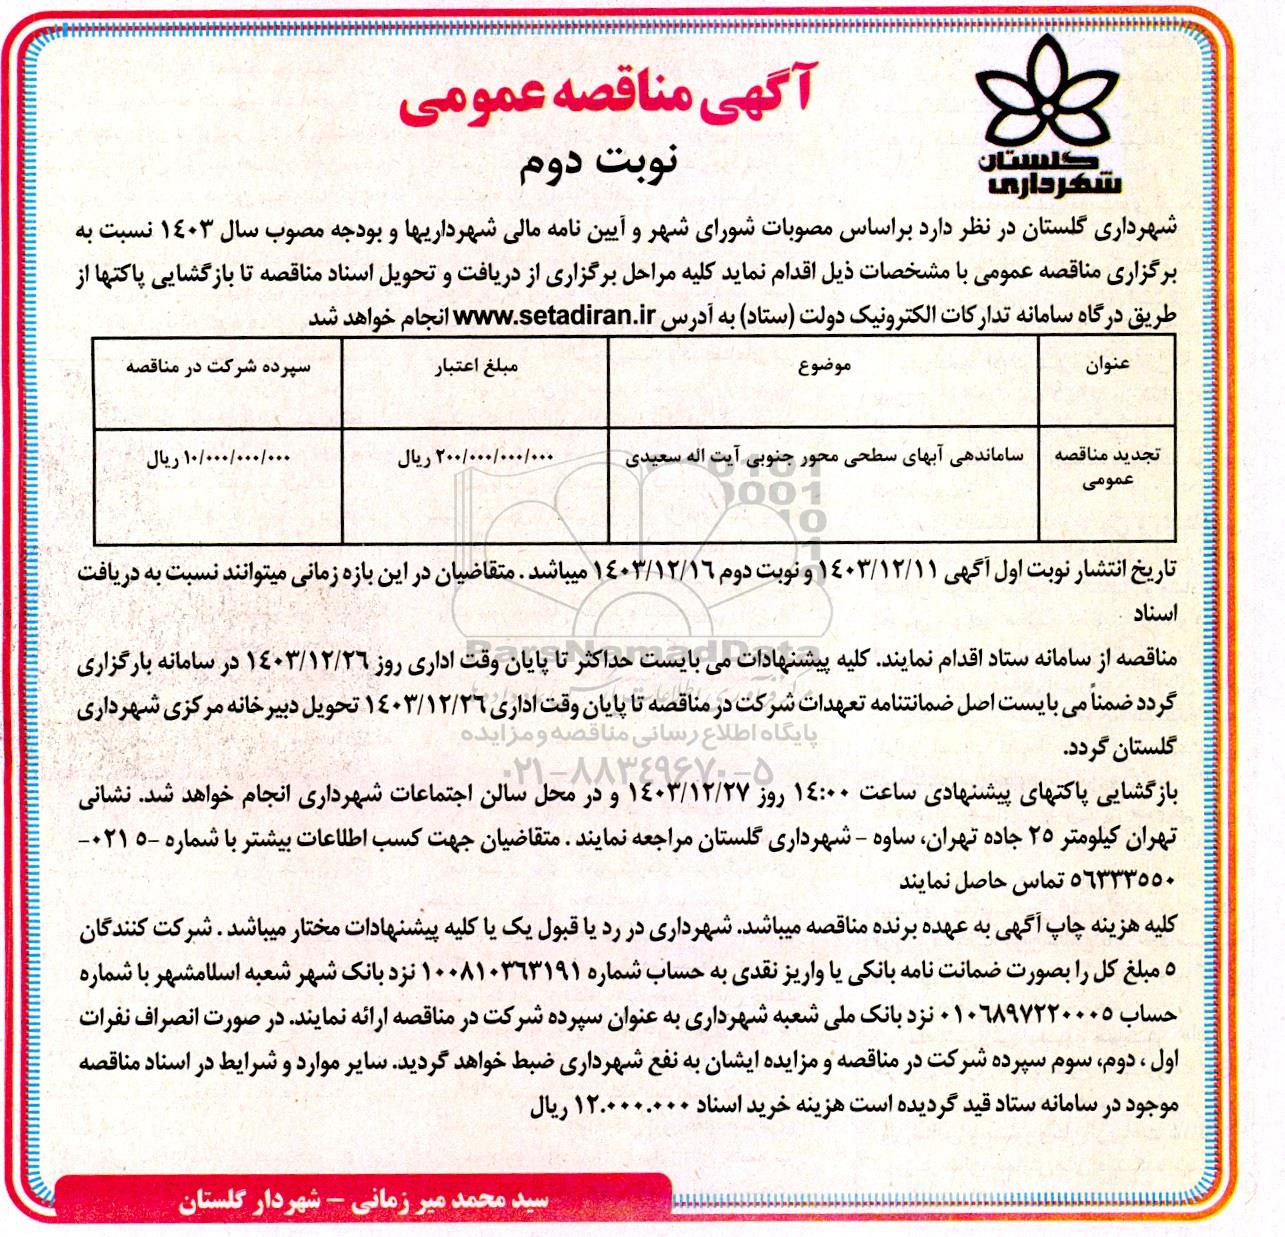 گلستان
شهرداری
آگهی مناقصه عمومی
نوبت دوم
شهرداری گلستان در نظر دارد براساس مصوبات شورای شهر و آیین نامه مالی شهرداریها و بودجه مصوب سال ۱۴۰۳ نسبت به
برگزاری مناقصه عمومی با مشخصات ذیل اقدام نماید کلیه مراحل برگزاری از دریافت و تحویل اسناد مناقصه تا بازگشایی پاکتها از
طریق درگاه سامانه تدارکات الکترونیک دولت (ستاد) به آدرس www.setadiran.ir انجام خواهد شد
عنوان موضوع مبلغ اعتبار سپرده شرکت در مناقصه
تجدید مناقصه ساماندهی آبهای سطحی محور جنوبی آیت اله سعیدی ۲۰۰/۰۰۰/۰۰۰/۰۰۰ ریال ۱۰/۰۰۰/۰۰۰/۰۰۰ ریال
عمومی
تاریخ انتشار نوبت اول آگهی ۱۴۰۳/۱۲/۱۱ و نوبت دوم ۱۴۰۳/۱۲/۱۶ میباشد . متقاضیان در این بازه زمانی میتوانند نسبت به دریافت
اسناد
مناقصه از سامانه ستاد اقدام نمایند. کلیه پیشنهادات می بایست حداکثر تا پایان وقت اداری روز ۱۴۰۳/۱۲/۲۶ در سامانه بارگزاری
گردد ضمناً می بایست اصل ضمانتنامه تعهدات شرکت در مناقصه تا پایان وقت اداری ۱۴۰۳/۱۲/۲۶ تحویل دبیرخانه مرکزی شهرداری
گلستان گردد.
بازگشایی پاکتهای پیشنهادی ساعت ۱۴:۰۰ روز ۱۴۰۳/۱۲/۲۷ و در محل سالن اجتماعات شهرداری انجام خواهد شد. نشانی
تهران کیلومتر ۲۵ جاده تهران، ساوه - شهرداری گلستان مراجعه نمایند . متقاضیان جهت کسب اطلاعات بیشتر با شماره -۵ ۰۲۱-
۵۶۳۳۳۵۵۰ تماس حاصل نمایند
کلیه هزینه چاپ آگهی به عهده برنده مناقصه میباشد. شهرداری در رد یا قبول یک یا کلیه پیشنهادات مختار میباشد . شرکت کنندگان
۵ مبلغ کل را بصورت ضمانت نامه بانکی یا واریز نقدی به حساب شماره ۱۰۰۸۱۰۳۶۳۱۹۱ نزد بانک شهر شعبه اسلامشهر با شماره
حساب ۰۱۰۶۸۹۷۲۲۰۰۰۵ نزد بانک ملی شعبه شهرداری به عنوان سپرده شرکت در مناقصه ارائه نمایند. در صورت انصراف نفرات
اول ، دوم، سوم سپرده شرکت در مناقصه و مزایده ایشان به نفع شهرداری ضبط خواهد گردید. سایر موارد و شرایط در اسناد مناقصه
موجود در سامانه ستاد قید گردیده است هزینه خرید اسناد ۱۲.۰۰۰.۰۰۰ ریال
سید محمد میر زمانی - شهردار گلستان
ParsNamadData
پایگاه اطلاع رسانی مناقصه و مزایده
۰۲۱-۸۸۳۴۹۶۷۰-۵